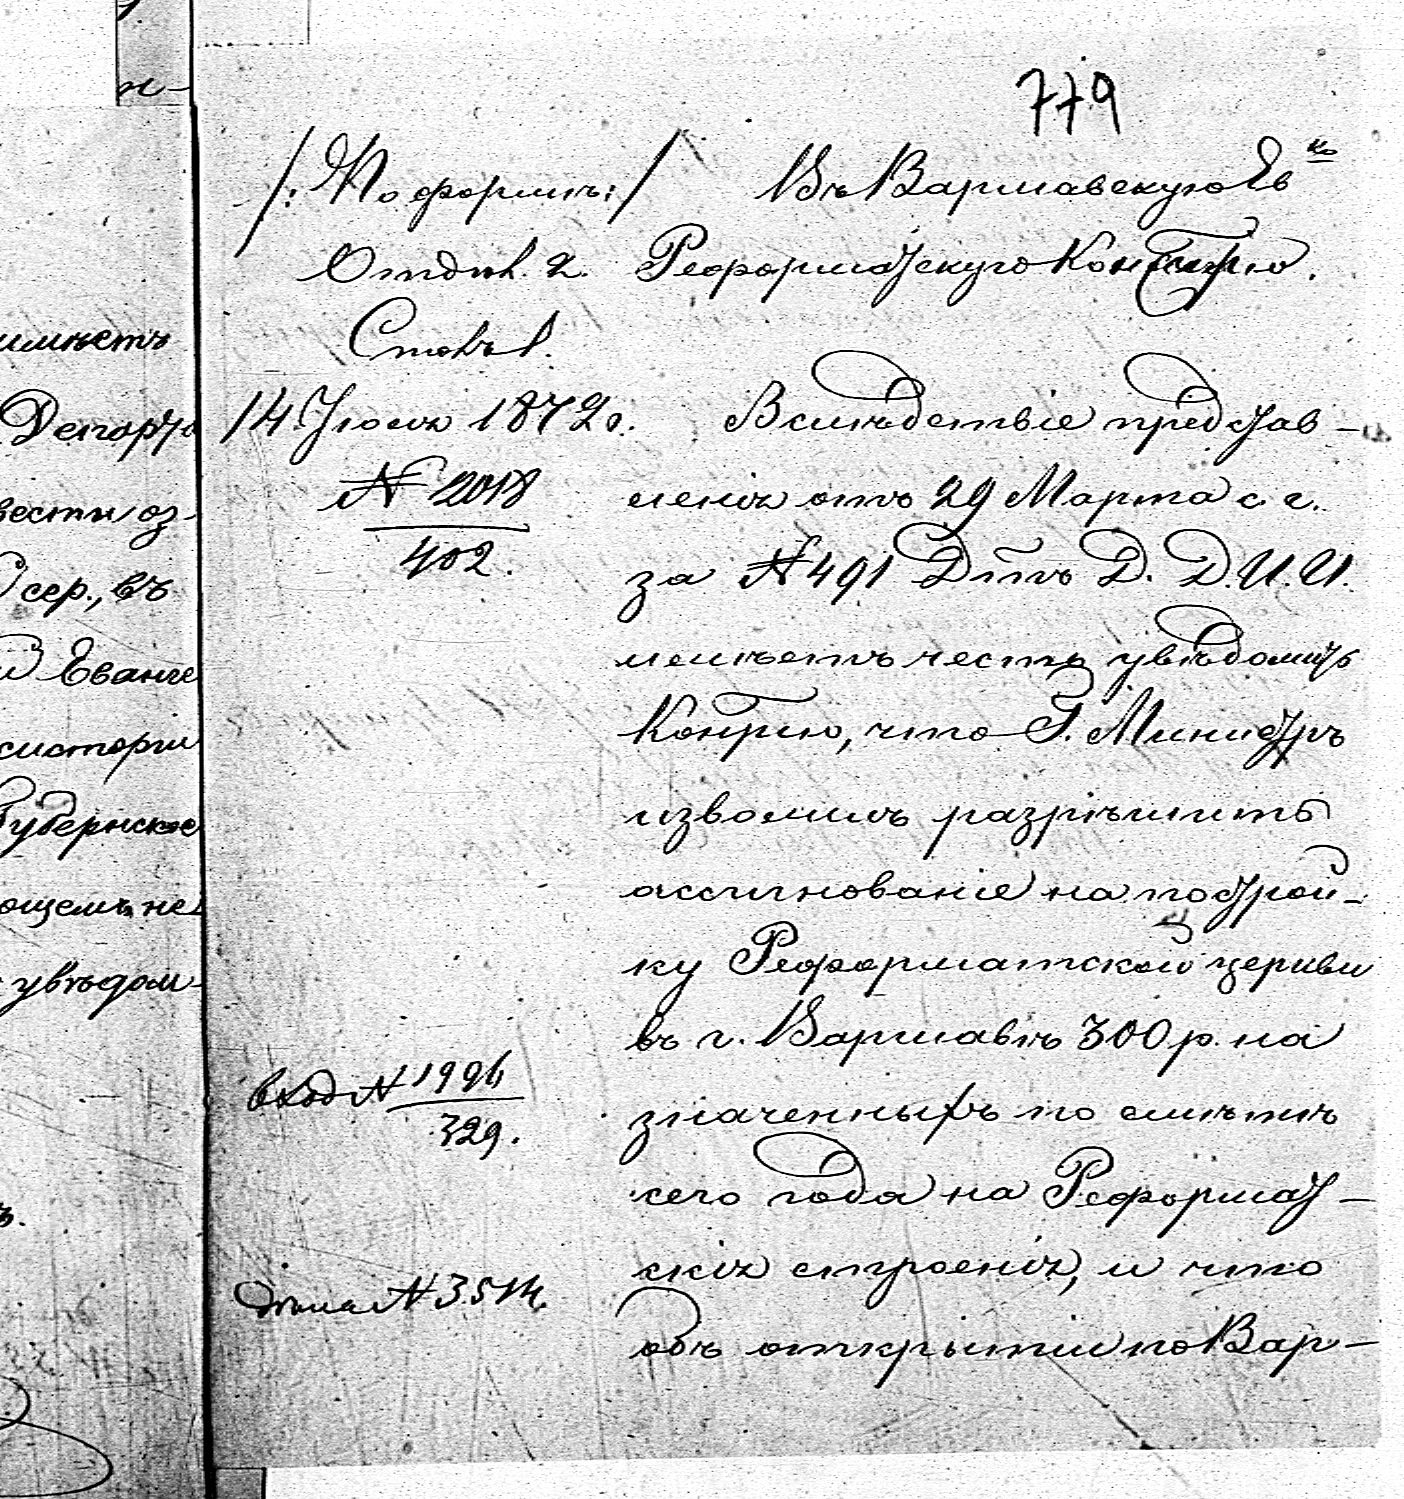 779
/: По формѣ :/
Отдѣл. 2.
Столъ 1.
14 Іюля 1872 г.
№ 2018
402.
вход № 1996
329.
дѣла № 3514.
Въ Варшавскую Ев ко
Реформатскую Конст̃рію.
Вслѣдствіе представ-
ленія отъ 29 Марта с. г.
за № 491 Д͠тъ Д. Д. И. И.
имѣетъ честь увѣдомить
Конс͠рію, что Г. Министръ
изволилъ разрѣшить
ассигнованіе на построй-
ку Реформатской церкви
въ г. Варшавѣ 300 р. на
значенныхъ по смѣтѣ
сего года на Реформат-
скія строенія, и что
объ открытіи по Вар-
имѣетъ
Департа
вести оз-
сер., въ
Еванге
систоріи
Губернское
ющемъ не
увѣдом-